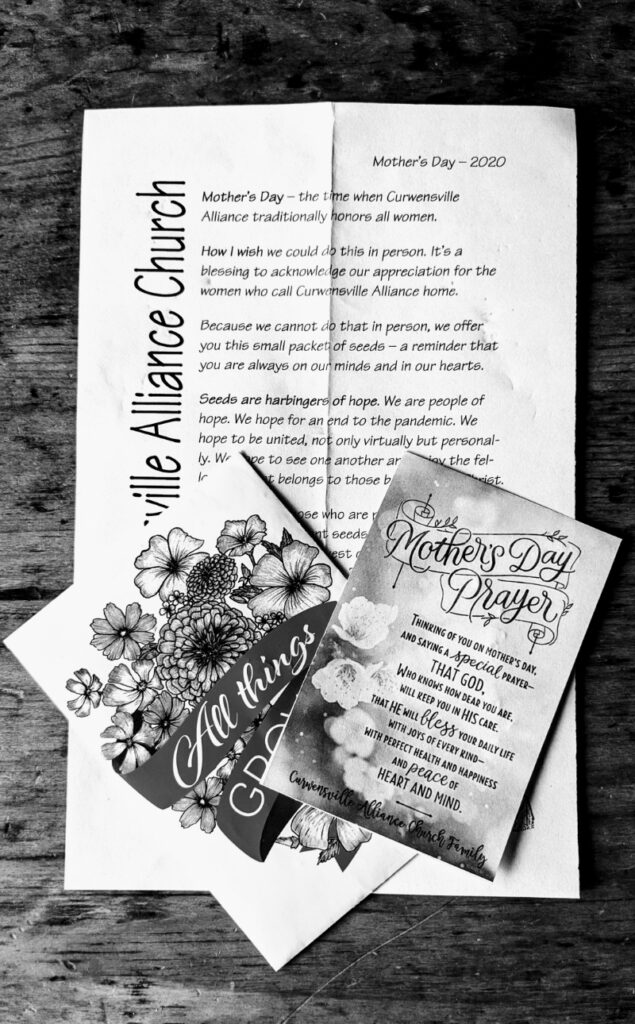 ville Alliance Church
Mother's Day – 2020
Mother's Day – the time when Curwensville
Alliance traditionally honors all women.
How I wish we could do this in person. It's a
blessing to acknowledge our appreciation for the
women who call Curwensville Alliance home.
Because we cannot do that in person, we offer
you this small packet of seeds – a reminder that
you are always on our minds and in our hearts.
Seeds are harbingers of hope. We are people of
hope. We hope for an end to the pandemic. We
hope to be united, not only virtually but personal-
ly. We hope to see one another and enjoy the fel-
belongs to those
who are
seeds
All things
GRO
Mother's Day
Prayer
THINKING OF YOU ON MOTHER'S DAY,
AND SAYING A special PRAYER–
THAT GOD,
WHO KNOWS HOW DEAR YOU ARE,
WILL KEEP YOU IN HIS CARE.
THAT HE WILL bless YOUR DAILY LIFE
WITH JOYS OF EVERY KIND–
WITH PERFECT HEALTH AND HAPPINESS
AND peace OF
HEART AND MIND.
Curwensville Alliance Church Family